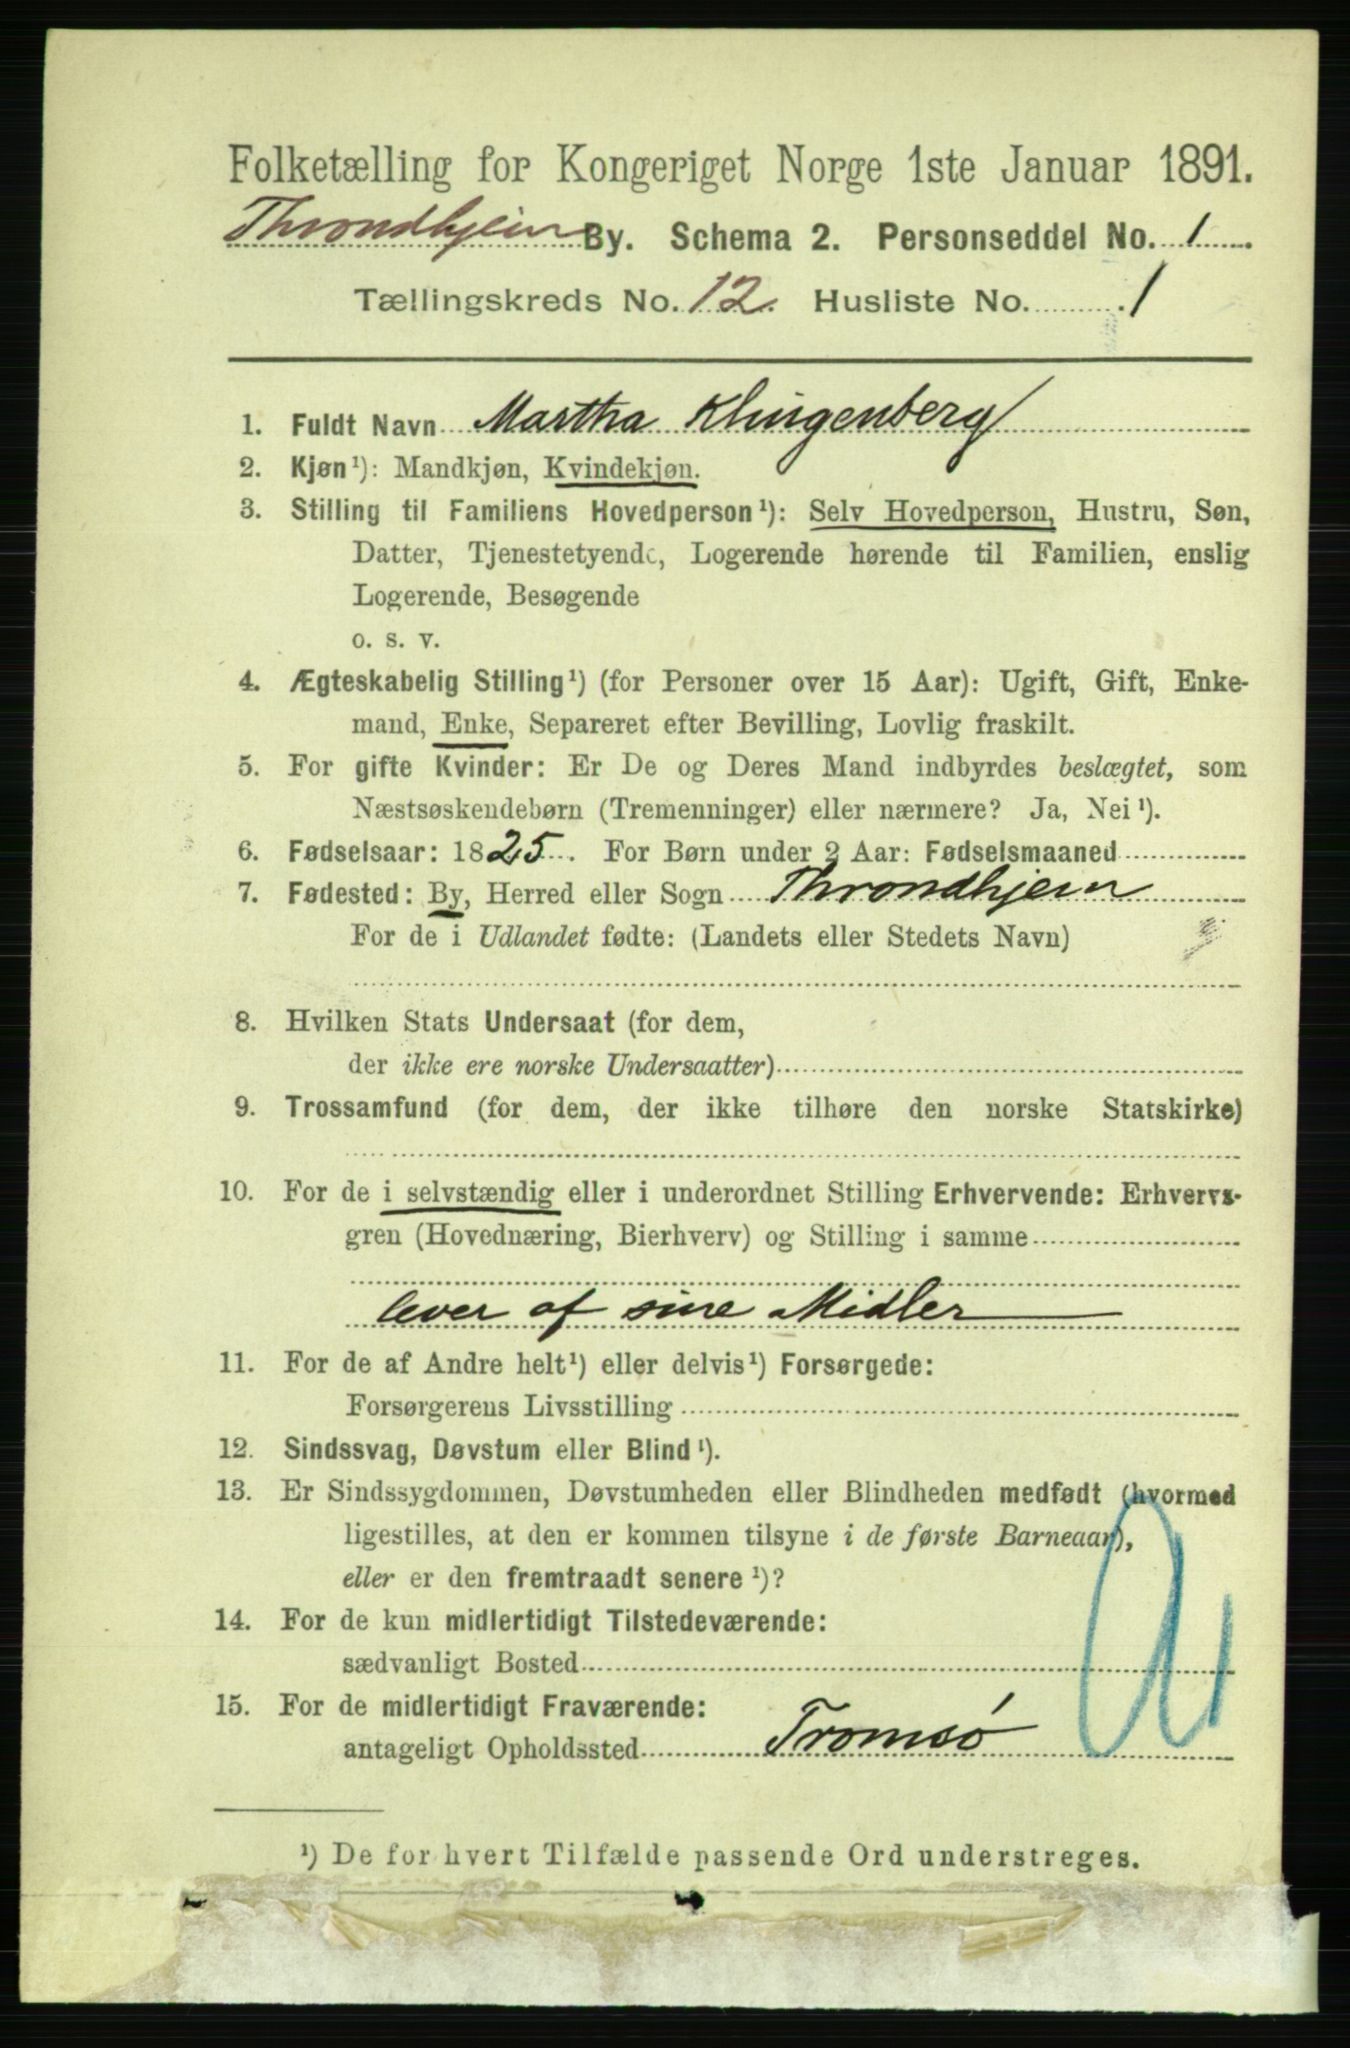 Folketælling for Kongeriget Norge 1ste Januar 1891.
Throndhjem By. Schema 2. Personseddel No. 1
Tællingskreds No. 12. Husliste No. 1
1. Fuldt Navn Martha Klingenberg
2. Kjøn¹): Mandkjøn, Kvindekjøn.
3. Stilling til Familiens Hovedperson¹): Selv Hovedperson, Hustru, Søn,
Datter, Tjenestetyende, Logerende hørende til Familien, enslig
Logerende, Besøgende
o. s. v.
4. Ægteskabelig Stilling¹) (for Personer over 15 Aar): Ugift, Gift, Enke-
mand, Enke, Separeret efter Bevilling, Lovlig fraskilt.
5. For gifte Kvinder: Er De og Deres Mand indbyrdes beslægtet, som
Næstsøskendebørn (Tremenninger) eller nærmere? Ja, Nei¹).
6. Fødselsaar: 1825. For Børn under 2 Aar: Fødselsmaaned
7. Fødested: By, Herred eller Sogn Throndhjem
For de i Udlandet fødte: (Landets eller Stedets Navn)
8. Hvilken Stats Undersaat (for dem,
der ikke ere norske Undersaatter)
9. Trossamfund (for dem, der ikke tilhøre den norske Statskirke)
10. For de i selvstændig eller i underordnet Stilling Erhvervende: Erhvervs-
gren (Hovednæring, Bierhverv) og Stilling i samme
lever af sine Midler
11. For de af Andre helt¹) eller delvis¹) Forsørgede:
Forsørgerens Livsstilling
12. Sindssvag, Døvstum eller Blind¹).
13. Er Sindssygdommen, Døvstumheden eller Blindheden medfødt (hvormed
ligestilles, at den er kommen tilsyne i de første Barneaar),
eller er den fremtraadt senere¹)?
14. For de kun midlertidigt Tilstedeværende:
sædvanligt Bosted
15. For de midlertidigt Fraværende:
antageligt Opholdssted Tromsø
¹) De for hvert Tilfælde passende Ord understreges.